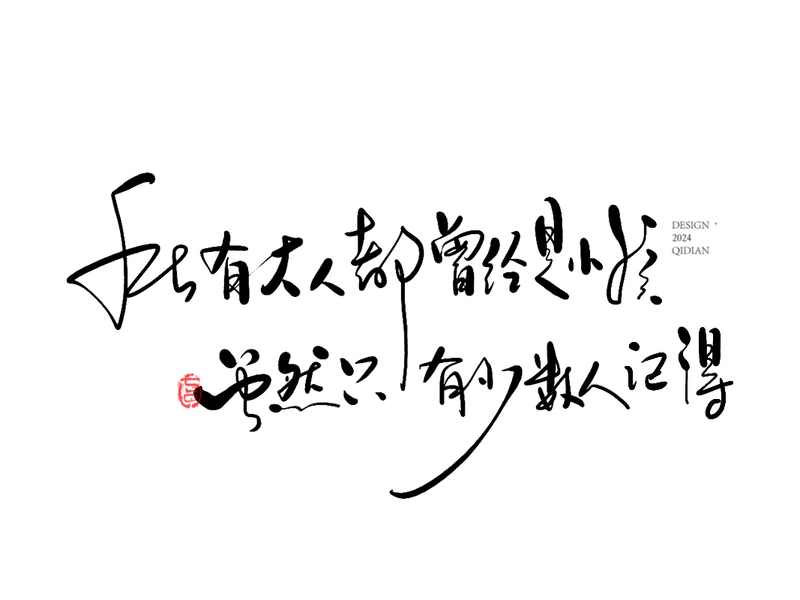 所有大人都曾经是小孩
DESIGN
2024
QIDIAN
虽然只有少数人记得